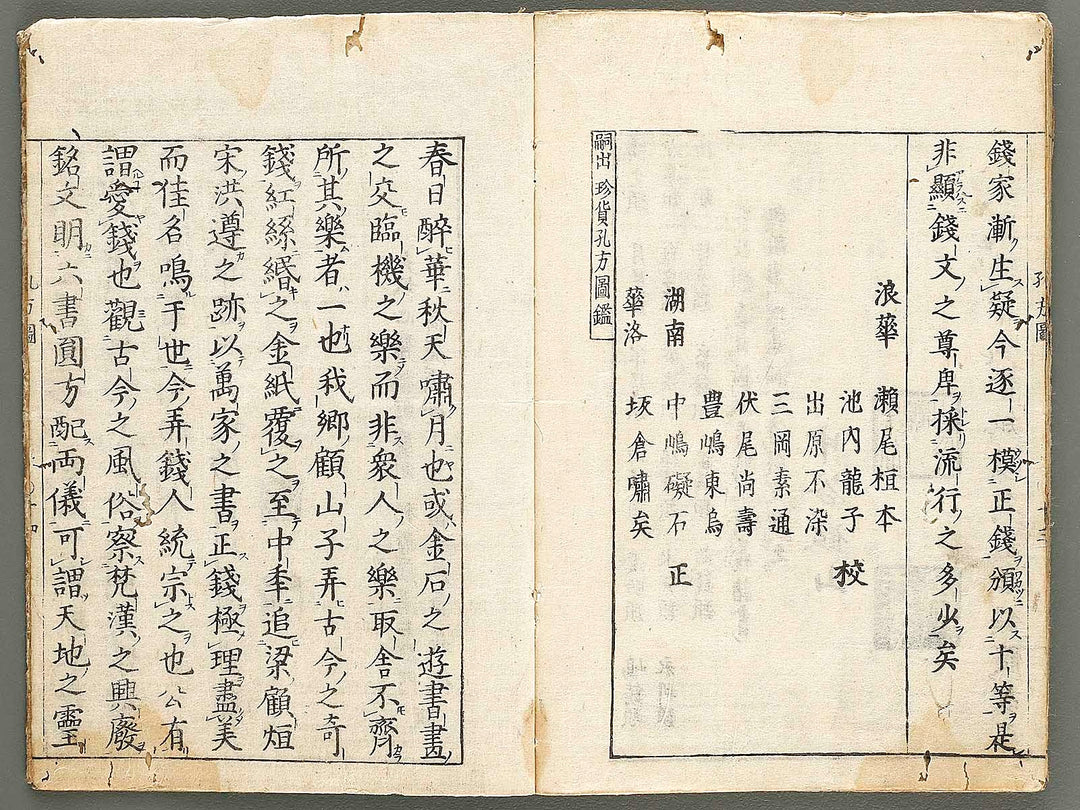 錢家漸生疑今逐一模正錢頒以十等是
非顯錢文之尊卑採流行之多少矣
浪華 瀨尾桓本
池內龍子 校
出原不染
三岡素通
伏尾尚壽
豊嶋東烏
湖南 中嶋礙石 正
華洛 坂倉嘯矣
嗣出 珍貨孔方圖鑑
春日醉華秋天嘯月也或金石之遊書畫
之交臨機之樂而非衆人之樂取舍不齊
所其樂者一也我鄉顧山子弄古今之奇
錢紅絲緡之金紙覆之至中季追梁顧烜
宋洪遵之跡以萬家之書正錢極理盡美
而佳名鳴于世今弄錢人統宗之也公有
謂愛錢也觀古今之風俗察梵漢之興廢
銘文明六書圓方配両儀可謂天地之靈